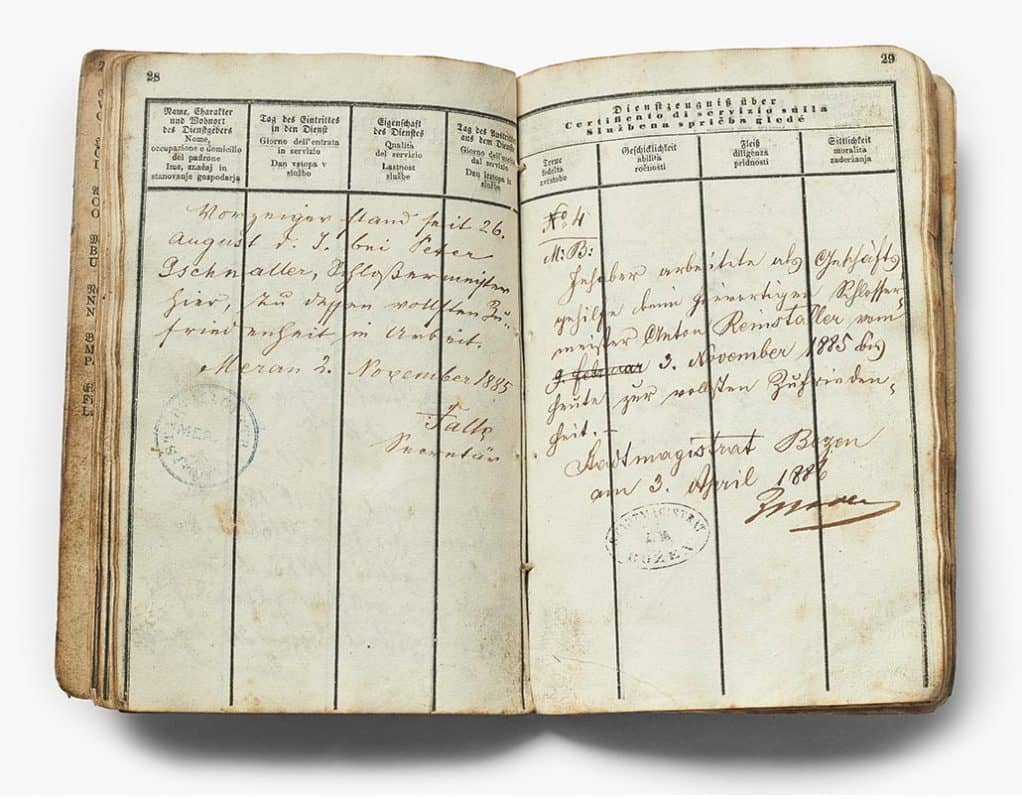 28
Name, Charakter
und Wohnort
des Dienstgebers
Nome,
occupazione e domicilio
del padrone
Ime, značaj in
stanovanje gospodarja
Tag des Eintrittes
in den Dienst
Giorno dell'entrata
in servizio
Dan vstopa v
službo
Eigenschaft
des Dienstes
Qualità
del servizio
Lastnost
službe
Tag des Austrittes
aus dem Dienste
Giorno dell'uscita
dal servizio
Dan izstopa iz
službe
Vorzeiger stand seit 26.
August d. J. bei Peter
Gschnaller, Schloßermeister
hier, zu dessen vollsten Zu-
friedenheit in Arbeit.
Meran 2. November 1885
Secretär
29
Dienstzeugniß über
Certificato di servizio sulla
Službena spričba glede
Treue
fedeltà
zvestobe
Geschicklichkeit
abilità
ročnosti
Fleiß
diligenza
pridnosti
Sittlichkeit
moralità
zadržanja
No 4
M: B:
Inhaber arbeitete als Geschäfts
gehilfe beim hierortigen Schlosser-
meister Anton Reinstaller vom
9. Februar 3. November 1885 bis
heute zur vollsten Zufrieden-
heit. –
Stadtmagistrat Bozen
am 3. April 1886
STADTMAGISTRAT
BOZEN